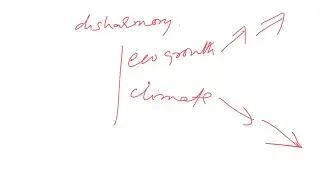 disharmony.
eco growth
climate